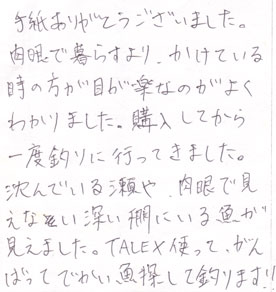 手紙ありがとうございました。
肉眼で暮らすより、かけている
時の方が目が楽なのがよく
わかりました。購入してから
一度釣りに行ってきました。
沈んでいる瀬や、肉眼で見
えない深い棚にいる魚が
見えました。TALEX使って、がん
ばってでかい魚探して釣ります!!